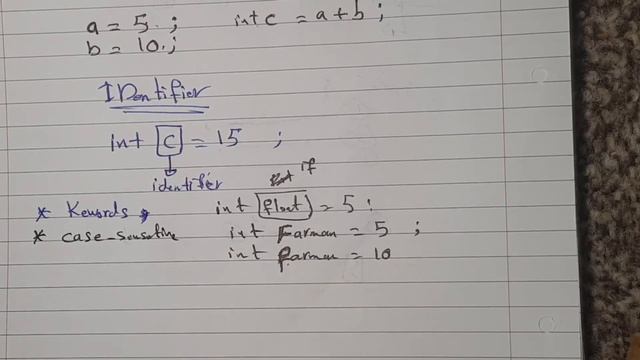 a = 5 ; int c = a + b ;
b = 10 ;
IDentifier
int c = 15 ;
identifier
if
* Kewords int float = 5 ;
* case-sensative int Farman = 5 ;
int farman = 10